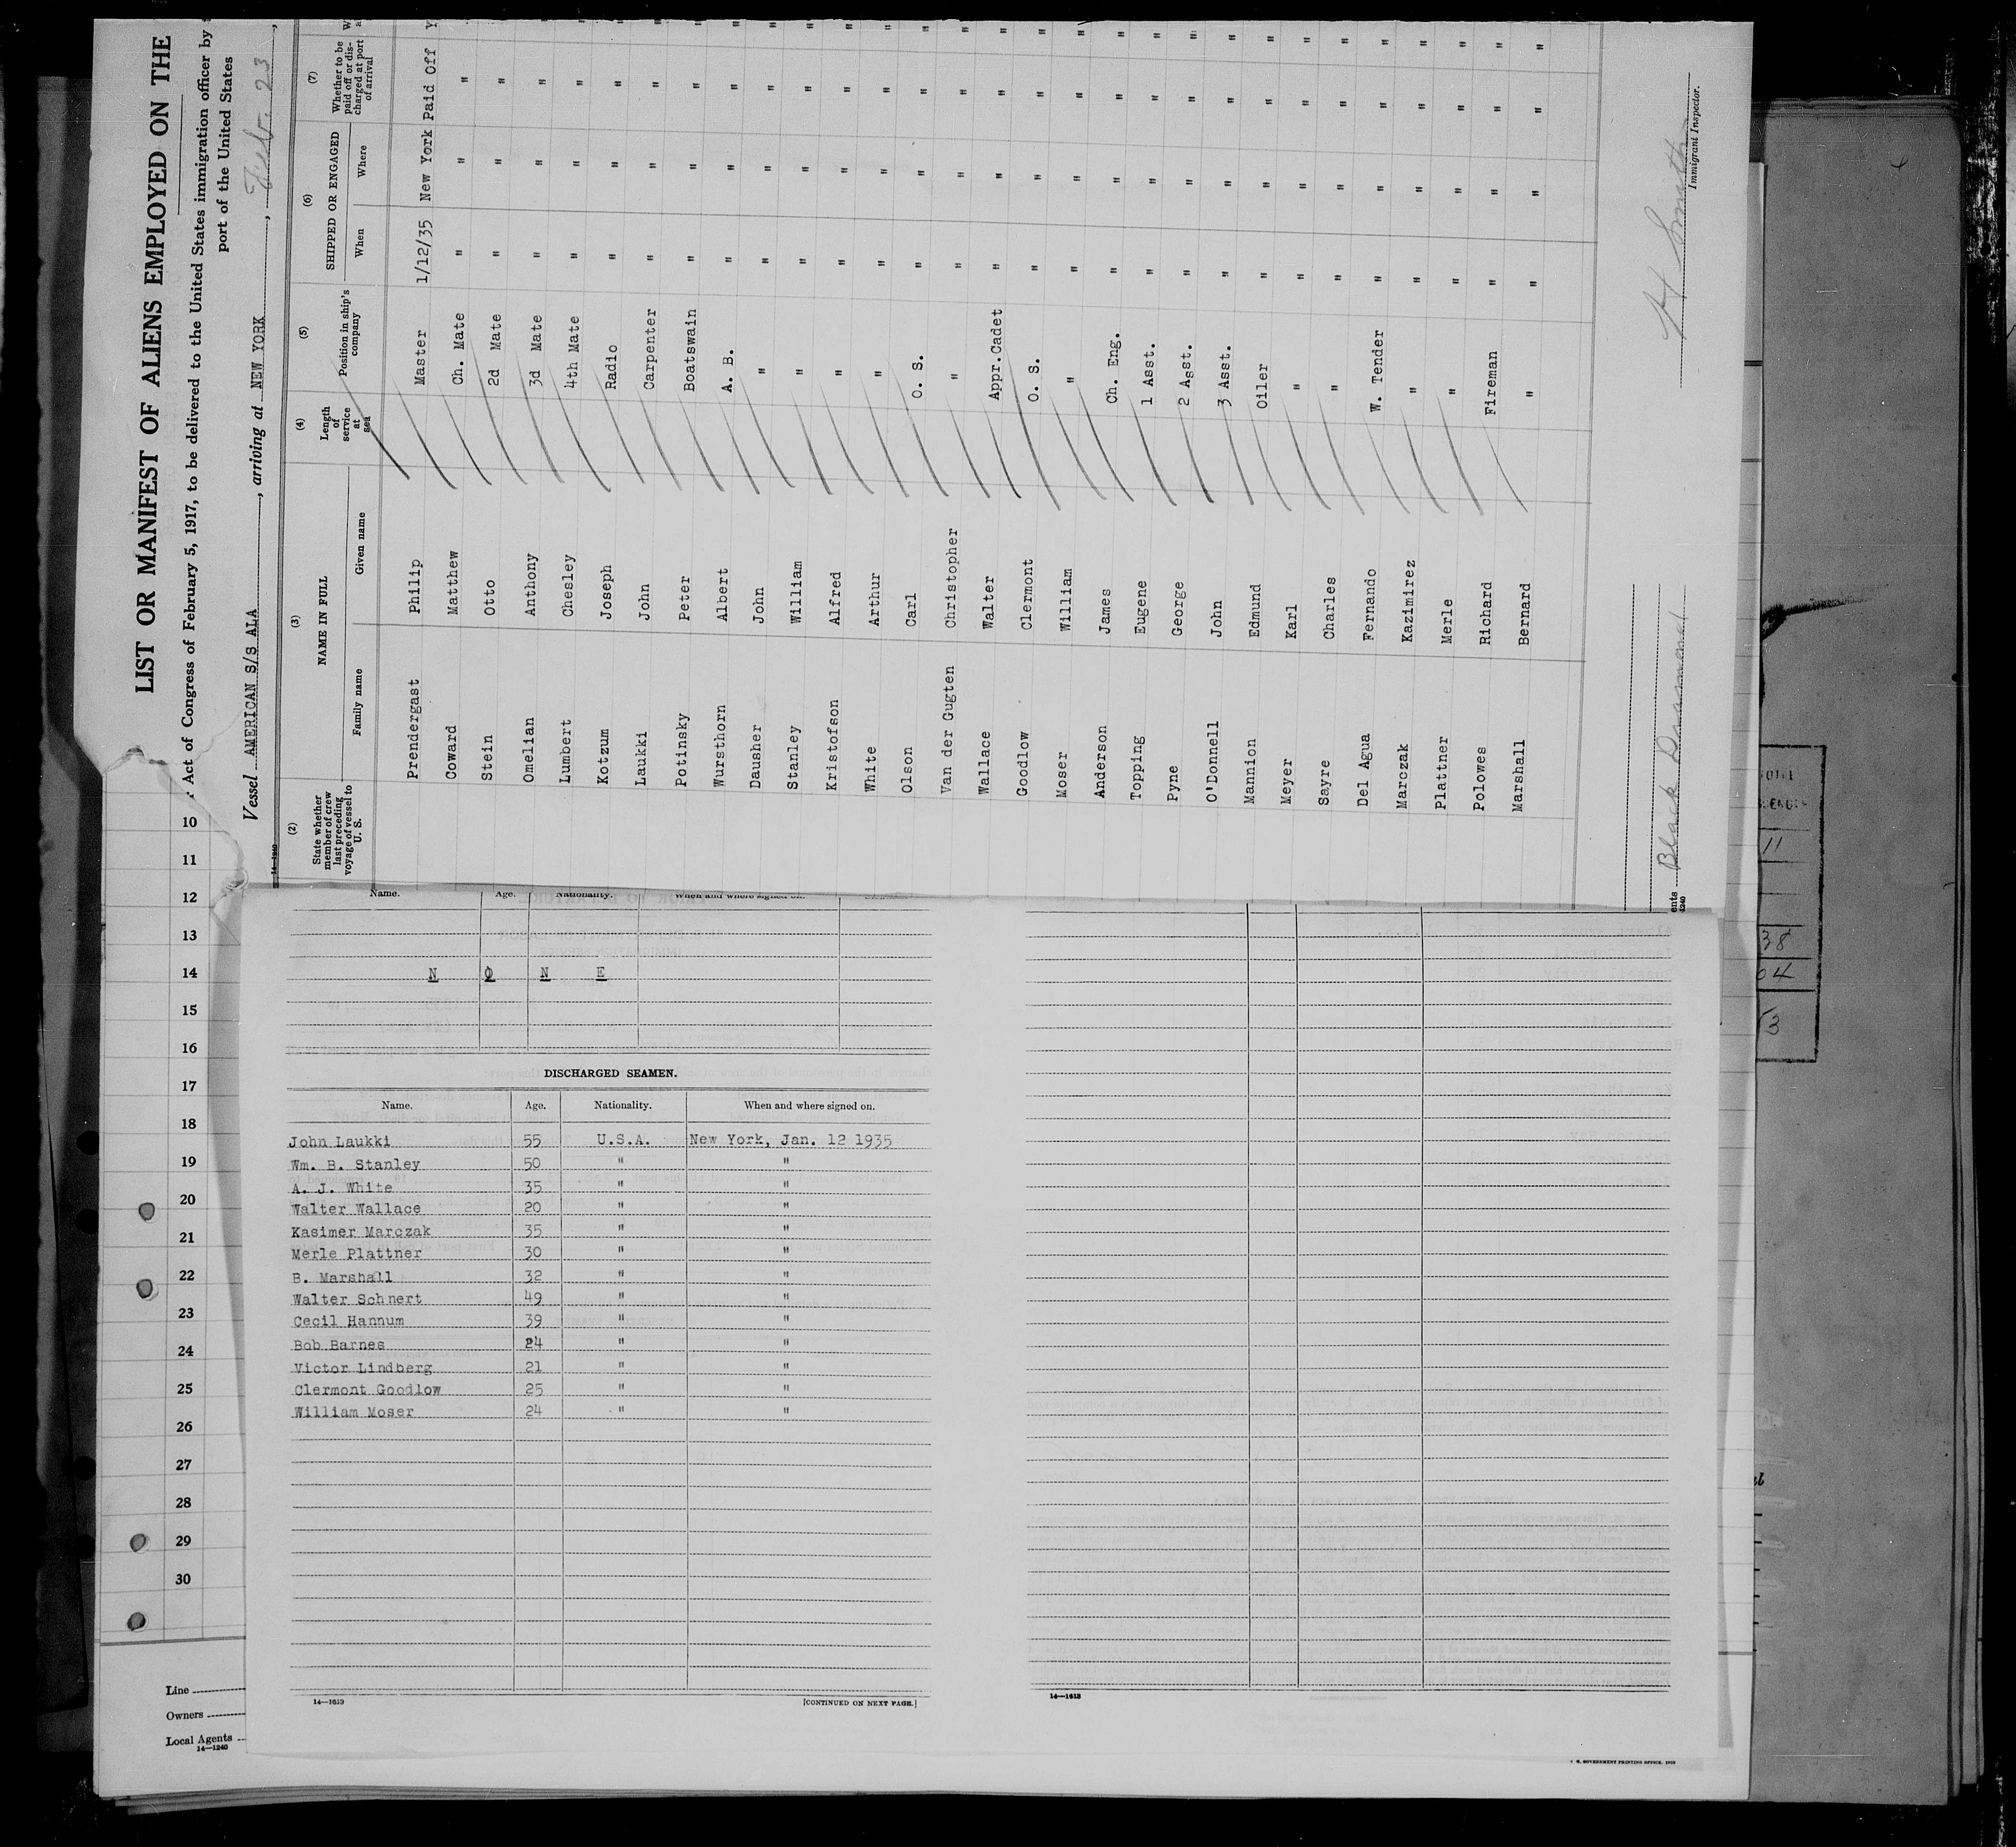 LIST OR MANIFEST OF ALIENS EMPLOYED ON THE
Act of Congress of February 5, 1917, to be delivered to the United States immigration officer by
port of the United States
Vessel AMERICAN S/S ALA , arriving at NEW YORK , Feb. 23 ,
14—1240
(2) (3) (4) (5) (6) (7)
State whether member of crew last preceding voyage of vessel to U. S. NAME IN FULL Length of service at sea Position in ship's company SHIPPED OR ENGAGED Whether to be paid off or discharged at port of arrival
Family name Given name When Where
Prendergast Philip Master 1/12/35 New York Paid Off Y
Coward Matthew Ch. Mate " " " "
Stein Otto 2d Mate " " " "
Omelian Anthony 3d Mate " " " "
Lumbert Chesley 4th Mate " " " "
Kotzum Joseph Radio " " " "
Laukki John Carpenter " " " "
Potinsky Peter Boatswain " " " "
Wursthorn Albert A. B. " " " "
Dausher John " " " " "
Stanley William " " " " "
Kristofson Alfred " " " " "
White Arthur " " " " "
Olson Carl O. S. " " " "
Van der Gugten Christopher " " " " "
Wallace Walter Appr.Cadet " " " "
Goodlow Clermont O. S. " " " "
Moser William " " " " "
Anderson James Ch. Eng. " " " "
Topping Eugene 1 Asst. " " " "
Pyne George 2 Asst. " " " "
O'Donnell John 3 Asst. " " " "
Mannion Edmund Oiler " " " "
Meyer Karl " " " " "
Sayre Charles " " " " "
Del Agua Fernando W. Tender " " " "
Marczak Kazimirez " " " " "
Plattner Merle " " " " "
Polowes Richard Fireman " " " "
Marshall Bernard " " " " "
ents Black Diamond
1240
H Smith
Immigrant Inspector.
10
11
12
13
14
15
16
17
18
19
20
21
22
23
24
25
26
27
28
29
30
Line
Owners
Local Agents
14—1240
Name. Age. Nationality. When and where signed on.
N O N E
DISCHARGED SEAMEN.
Name. Age. Nationality. When and where signed on.
John Laukki 55 U.S.A. New York, Jan. 12 1935
Wm. B. Stanley 50 " "
A. J. White 35 " "
Walter Wallace 20 " "
Kasimer Marczak 35 " "
Merle Plattner 30 " "
B. Marshall 32 " "
Walter Schnert 49 " "
Cecil Hannum 39 " "
Bob Barnes 24 " "
Victor Lindberg 21 " "
Clermont Goodlow 25 " "
William Moser 24 " "
14—1613 [CONTINUED ON NEXT PAGE.]
14—1613
GOVERNMENT PRINTING OFFICE
11
38
04